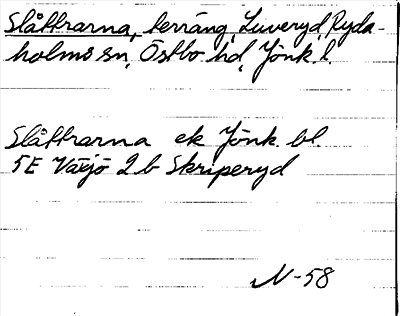 Slåttrarna, terräng, Luveryd, Ryda-
holms sn, Östbo hd, Jönk. l.
Slåttrarna ek Jönk. bl.
5E Växjö 2b Skriperyd
N-58